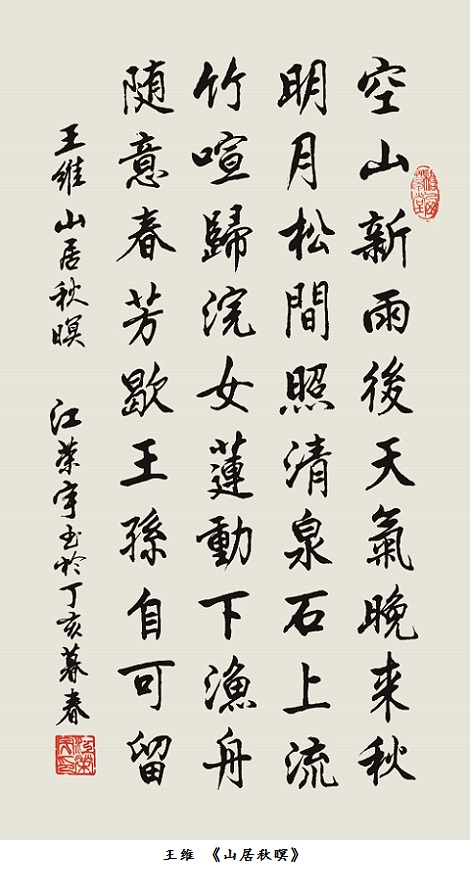 空山新雨後天氣晚来秋
明月松間照清泉石上流
竹喧歸浣女蓮動下漁舟
随意春芳歇王孫自可留
王維山居秋暝
江榮宇书於丁亥暮春
王维 《山居秋暝》